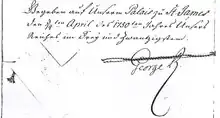 Gegeben auf Unserm Palais zu St. James
den April des 1750ten Jahres Unsers
Reichs im Drey und Zwanzigsten.
George R